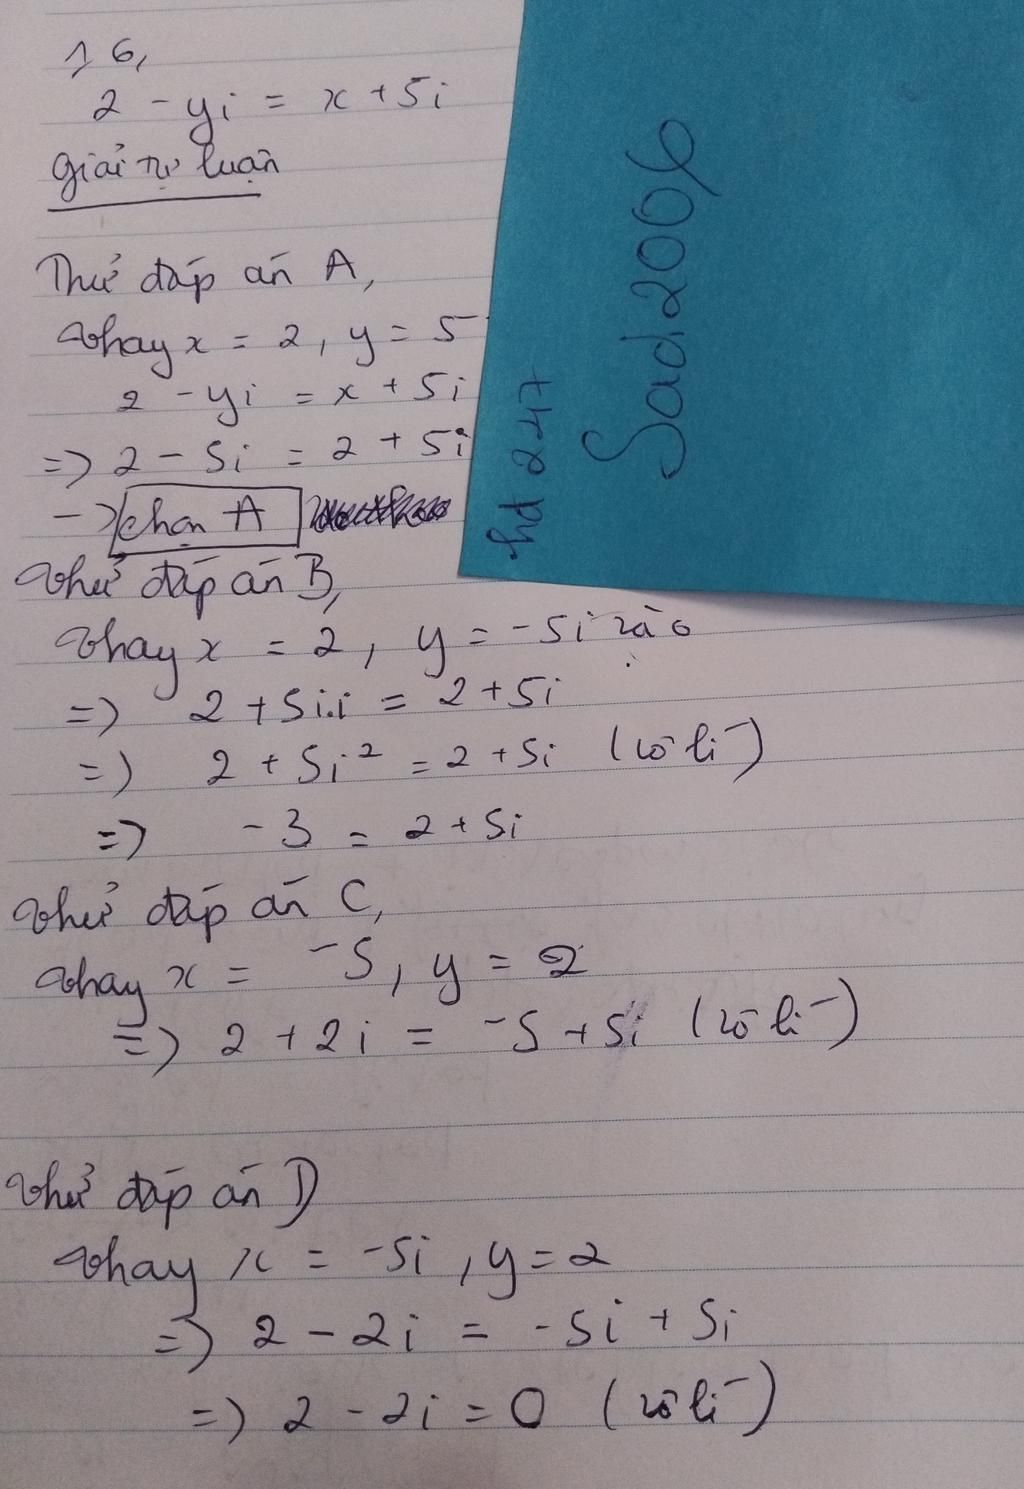 16,
2 - yi = x + 5i
Giải tự luận
Thử đáp án A,
thay x = 2, y = 5
2 - yi = x + 5i
=> 2 - 5i = 2 + 5i
-> chọn A
Thử đáp án B,
thay x = 2, y = -5i vào
=> 2 + 5i.i = 2 + 5i
=> 2 + 5i² = 2 + 5i (vô lí)
=> -3 = 2 + 5i
Thử đáp án C,
thay x = -5, y = 2
=> 2 + 2i = -5 + 5i (vô lí)
Thử đáp án D
thay x = -5i, y = 2
=> 2 - 2i = -5i + 5i
=> 2 - 2i = 0 (vô lí)
hd 247
Sad2006